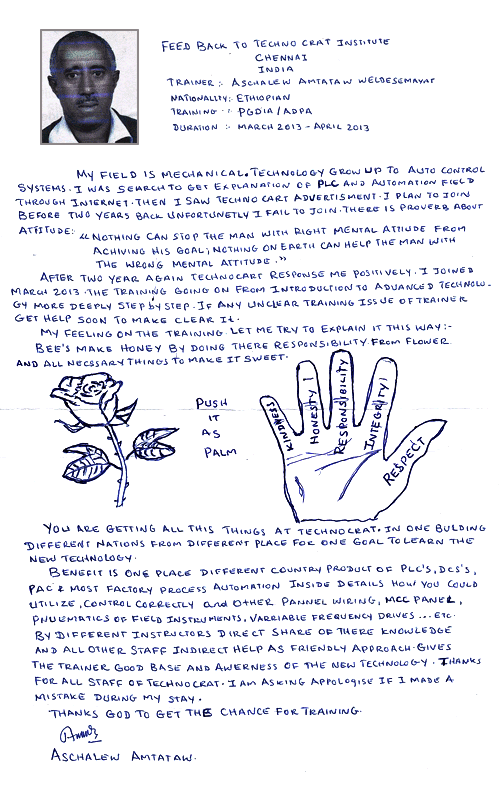 FEED BACK TO TECHNO CRAT INSTITUTE
CHENNAI
INDIA
TRAINER :- ASCHALEW AMTATAW WELDESEMAYAT
NATIONALITY:- ETHIOPIAN
TRAINING :- PGDIA/ADPA
DURATION :- MARCH 2013 - APRIL 2013
MY FIELD IS MECHANICAL. TECHNOLOGY GROW UP TO AUTO CONTROL
SYSTEMS. I WAS SEARCH TO GET EXPLANATION OF PLC AND AUTOMATION FIELD
THROUGH INTERNET. THEN I SAW TECHNO CART ADVERTISMENT. I PLAN TO JOIN
BEFORE TWO YEARS BACK UNFORTUNETLY I FAIL TO JOIN. THERE IS PROVERB ABOUT
ATTITUDE: "NOTHING CAN STOP THE MAN WITH RIGHT MENTAL ATTIUDE FROM
ACHIVING HIS GOAL; NOTHING ON EARTH CAN HELP THE MAN WITH
THE WRONG MENTAL ATTITUDE."
AFTER TWO YEAR AGAIN TECHNOCART RESPONSE ME POSITIVELY. I JOINED
MARCH 2013. THE TRAINING GOING ON FROM INTRODUCTION TO ADVANCED TECHNOLO-
GY MORE DEEPLY STEP by STEP. IF ANY UNCLEAR TRAINING ISSUE OF TRAINER
GET HELP SOON TO MAKE CLEAR It.
MY FEELING ON THE TRAINING. LET ME TRY TO EXPLAIN IT THIS WAY:-
BEE'S MAKE HONEY BY DOING THERE RESPONSIBILITY. FROM FLOWER
AND ALL NECSSARY THINGS TO MAKE IT SWEET.
PUSH
IT
AS
PALM
KINDNESS
HONESTY
RESPONSIBILITY
INTEGRITY
RESPECT
YOU ARE GETTING ALL THIS THINGS AT TECHNOCRAT. IN ONE BULDING
DIFFERENT NATIONS FROM DIFFERENT PLACE FOR ONE GOAL TO LEARN THE
NEW TECHNOLOGY.
BENEFIT IS ONE PLACE DIFFERENT COUNTRY PRODUCT OF PLC'S, DCS'S,
PAC & MOST FACTORY PROCESS AUTOMATION INSIDE DETAILS HOW YOU COULD
UTILIZE, CONTROL CORRECTLY and OTHER PANNEL WIRING, MCC PANEL,
PNUEMATICS OF FIELD INSTRUMENTS, VARRIABLE FREQUENCY DRIVES ... ETC.
BY DIFFERENT INSTRUCTORS DIRECT SHARE OF THERE KNOWLEDGE
AND ALL OTHER STAFF INDIRECT HELP AS FRIENDLY APPROACH. GIVES
THE TRAINER GOOD BASE AND AWERNESS OF THE NEW TECHNOLOGY. THANKS
FOR ALL STAFF OF TECHNOCRAT. I AM ASKING APPOLOGISE IF I MADE A
MISTAKE DURING MY STAY.
THANKS GOD TO GET THE CHANCE FOR TRAINING.
ASCHALEW AMTATAW.